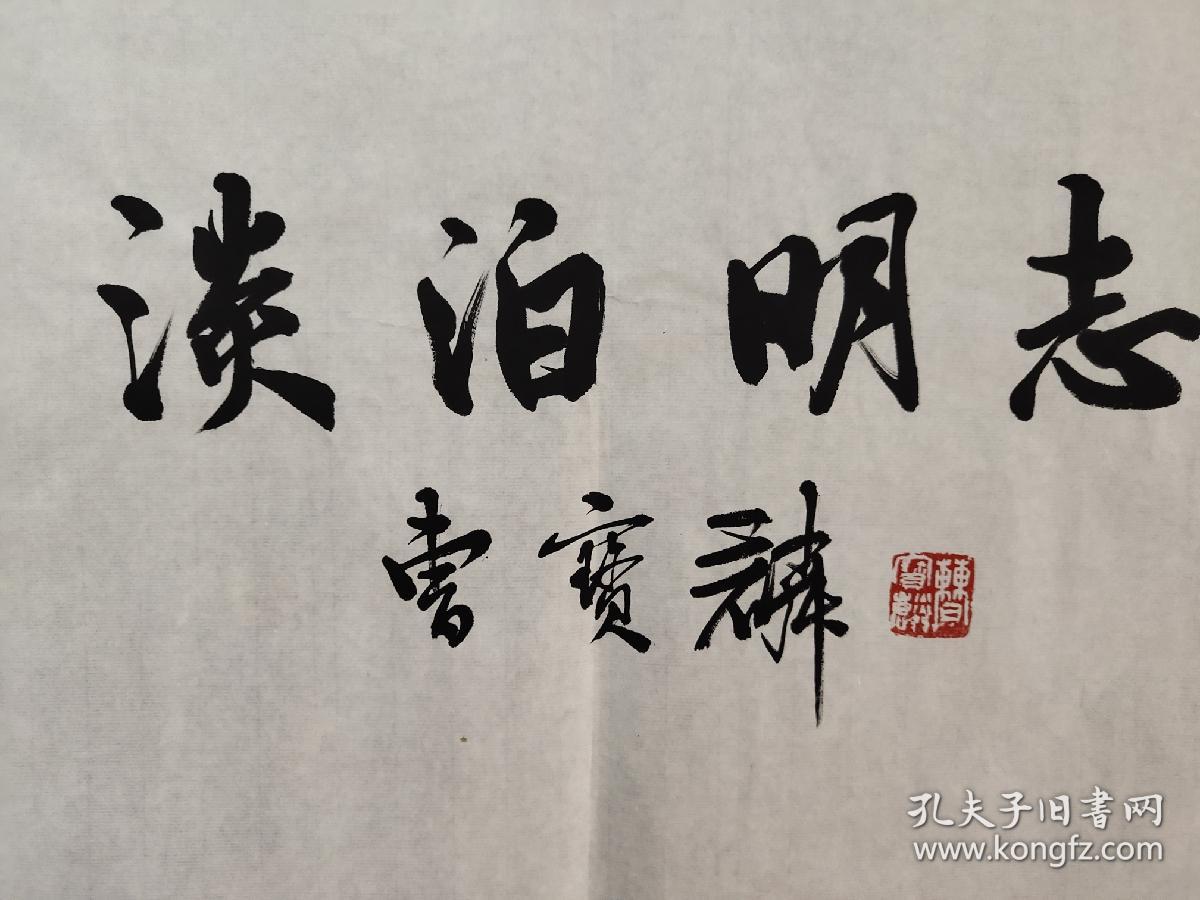 淡泊明志
曹寶麟
孔夫子旧书网
www.kongfz.com